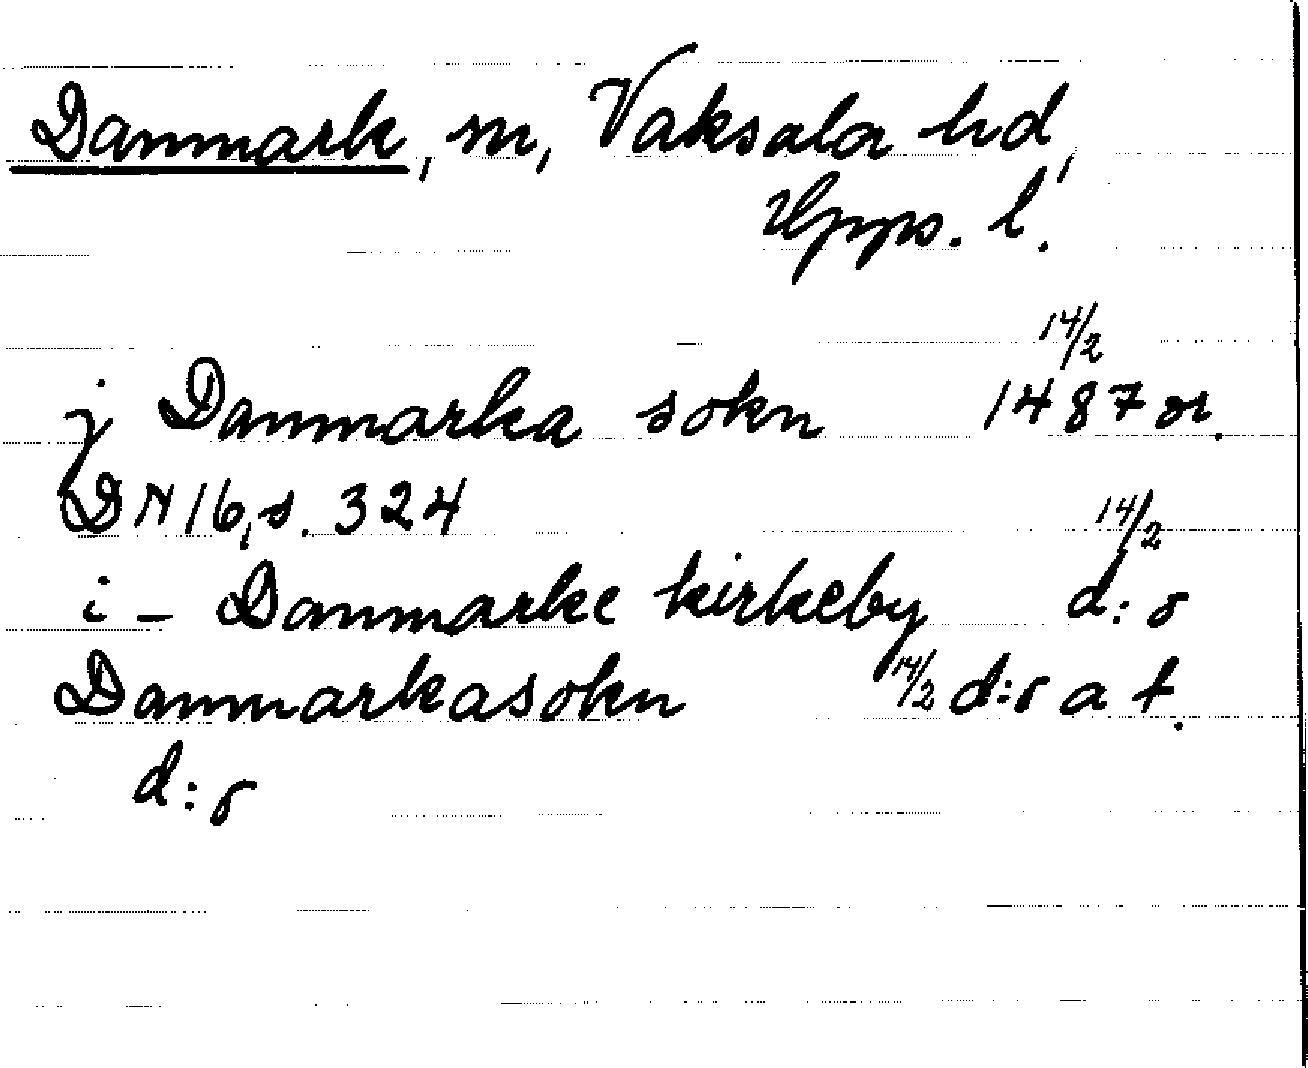 Danmark, sn, Vaksala hd,
Upps. l.
14/2
j Danmarka sokn 1487 or.
DN 16, s. 324
14/2
i - Danmarke kirkeby d:o
Danmarkasokn 14/2 d:o a t.
d:o